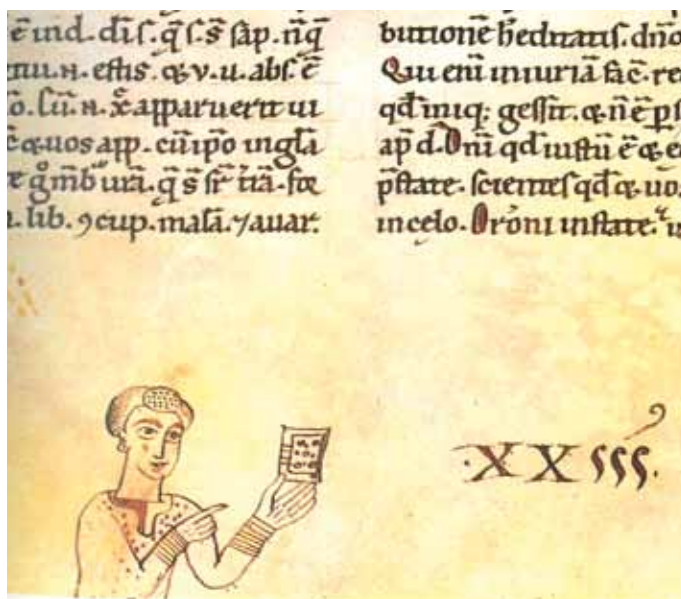 ē ind. diſ. q̄ ſ. s̄ ſap. n̄q̄
.n. eſtis. & v. u. abſ. ē
ſū. n. x̄ apparuerit ui
& uos app. cū ipo in glā
g̊ mb̄ urā. q̄ s̄ ſr̄ t̄rā. for
lib. ꝯcup. malā. ⁊ auar.
butionē h̄editatiſ. dn̄o
Qui enī iniuriā fac̄. re
qd̄ iniq; geſſit. & n̄ ē pſ
ap̄ d̄. Dn̄i qd̄ iuſtū ē & e
p̄ſtate. ſcienteſ qd̄ & uo
in celo. Orōni inſtate.
·XXIII·